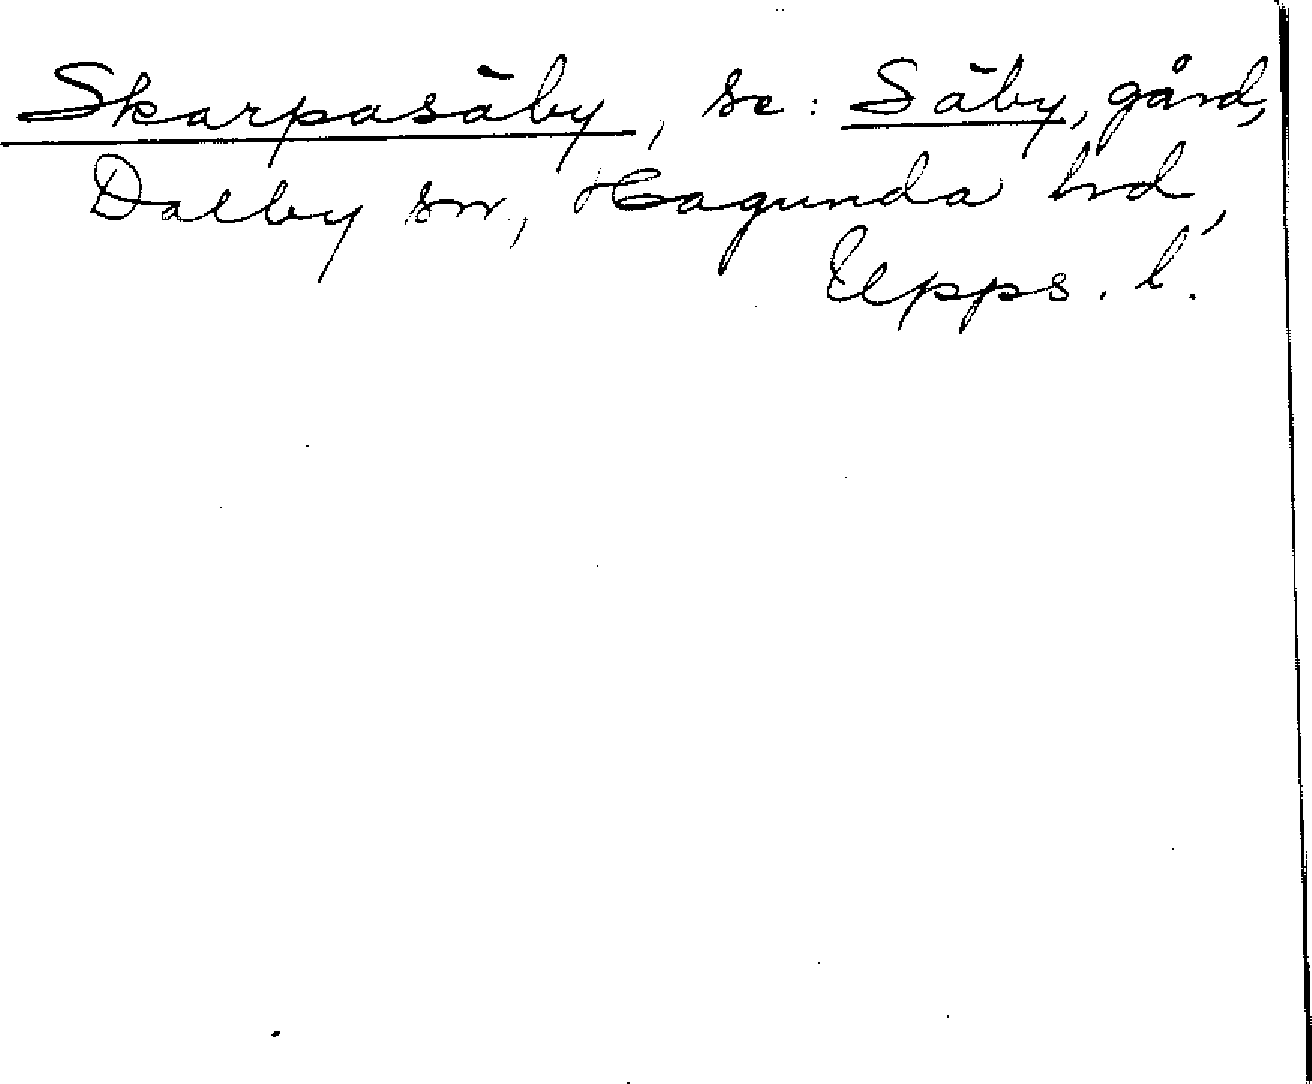 Skarpasäby, se: Säby, gård,
Dalby sn, Hagunda hd,
Upps. l.